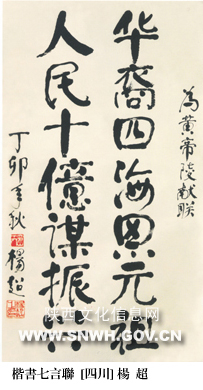 为黄帝陵献联
华裔四海思元祖
人民十億谋振兴
丁卯年秋
楊超
陕西文化信息网
WWW.SNWH.GOV.CN
楷書七言聯 [四川] 楊 超